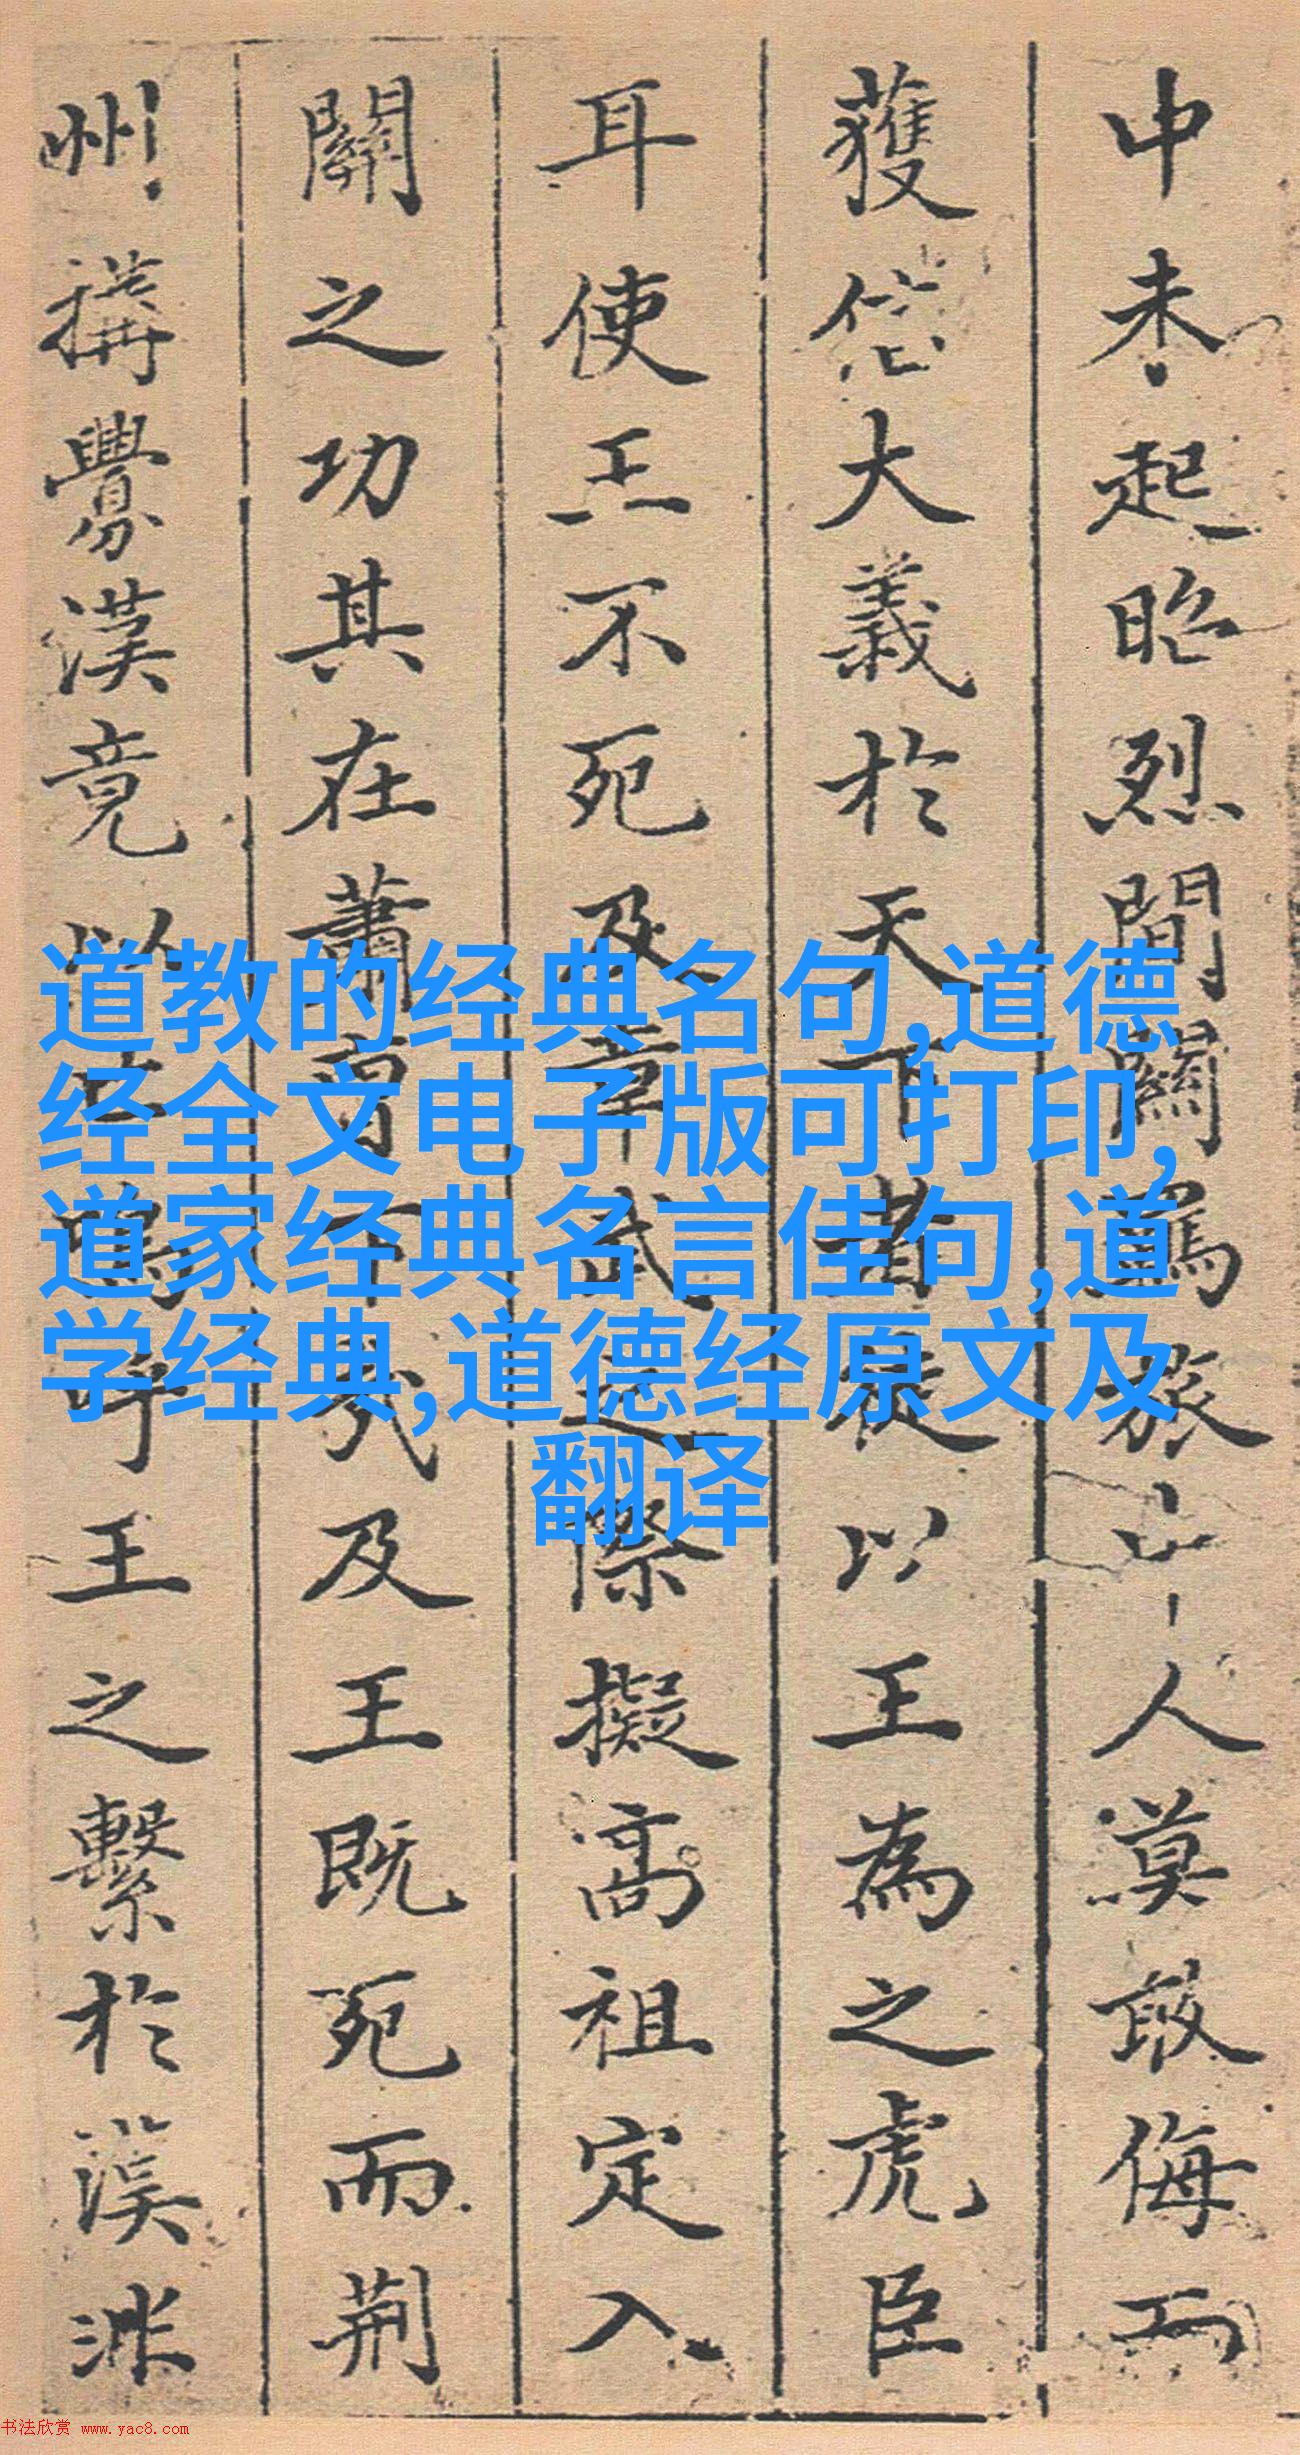 中未起昭烈間關羈旅人莫敢侮而
獲信大義於天下者徒以王為之虎臣
耳使王不死及章武之際擬高祖定入
關之功其在蕭曹下哉及王既死而荆
州搆釁漢竟以亡嗚呼王之繫於漢
道教的经典名句,道德
经全文电子版可打印,
道家经典名言佳句,道
学经典,道德经原文及
翻译
书法欣赏 www.yac8.com